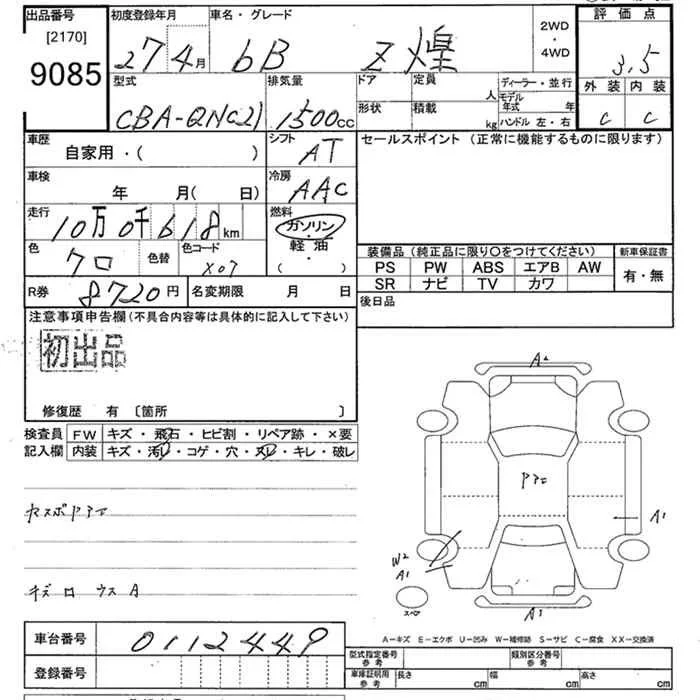 出品番号 初度登録年月 車名・グレード 2WD・4WD 評価点
[2170]
9085
27 4月 bB Z 燦 3.5
型式 排気量 ドア 定員 人 ディーラー・並行 外装 内装
CBA-QNC21 1500cc 形状 積載 kg モデル年式 年 ハンドル 左・右 C C
車歴 シフト セールスポイント (正常に機能するものに限ります)
自家用・( ) AT
車検 冷房
年 月( 日) AAC
走行 燃料
10万 0千 618km ガソリン・軽油・( )
色 色替 色コード 装備品 (純正品に限り○をつけてください) 新車保証書
クロ X07 PS PW ABS エアB AW 有・無
SR ナビ TV カワ
R券 8720円 名変期限 月 日 後日品
注意事項申告欄(不具合内容等は具体的に記入して下さい)
初出品
修復歴 有 〔箇所 〕
検査員 FW キズ・飛石・ヒビ割・リペア跡・×要
記入欄 内装 キズ・汚レ・コゲ・穴・ヌレ・キレ・破レ
A2
A1
W2
A1
スペア
A1
A-キズ E-エクボ U-凹み W-補修跡 S-サビ C-腐食 XX-交換済
車台番号 0112449
登録番号
型式指定番号 参考 類別区分番号 参考
車庫証明用 参考 長さ cm 幅 cm 高さ cm